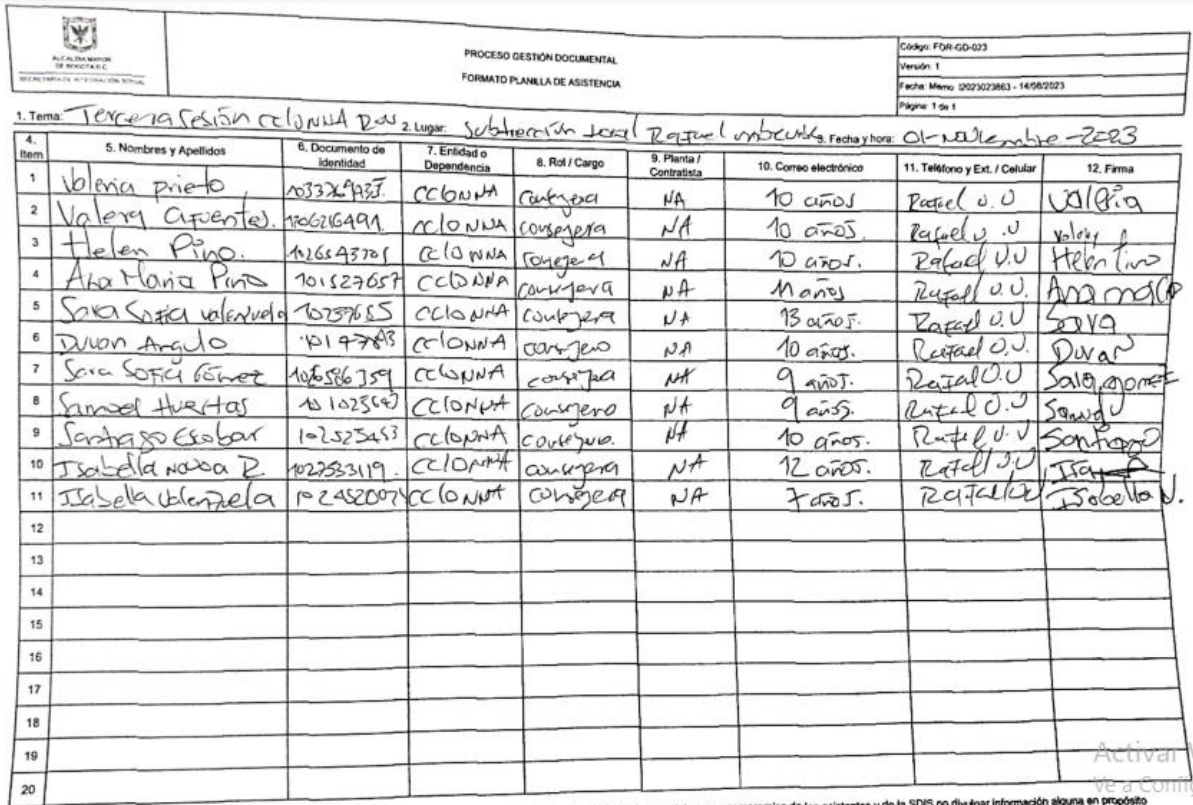 ALCALDÍA MAYOR
DE BOGOTÁ D.C.
SECRETARÍA DE INTEGRACIÓN SOCIAL
PROCESO GESTIÓN DOCUMENTAL
FORMATO PLANILLA DE ASISTENCIA
Código: FOR-GD-023
Versión: 1
Fecha: Memo I2023023863 - 14/08/2023
Página: 1 de 1
1. Tema: Tercera Sesión CCIONNA 2. Lugar: Subdirección Local Rafael 3. Fecha y hora: 01-Noviembre-2023
4. Item 5. Nombres y Apellidos 6. Documento de identidad 7. Entidad o Dependencia 8. Rol / Cargo 9. Planta / Contratista 10. Correo electrónico 11. Teléfono y Ext. / Celular 12. Firma
1 Valeria Prieto CCIONNA Consejera NA 10 años Rafael U.U Valeria
2 Valery Cifuentes. CCIONNA consejera NA 10 años. Rafael U.U Valery
3 Helen Pino. CCIONNA consejera NA 10 años. Rafael U.U Helen Pino
4 Ana Maria Pino 101527657 CCIONNA consejera NA 11 años Rafael U.U. Ana
5 Sara Sofia Valenzuela CCIONNA consejera NA 13 años. Rafael U.U Sara
6 Duvan Angulo CCIONNA consejero NA 10 años. Rafael U.U. Duvan
7 Sara Sofia Gómez 1026586359 CCIONNA consejera NA 9 años. Rafael U.U Sara gomez
8 Samuel Huertas CCIONNA consejero NA 9 años. Rafael U.U Samuel
9 Santiago Escobar 102525453 CCIONNA consejero. NA 10 años. Rafael U.U Santiago
10 Isabella Novoa R. 1027533119. CCIONNA consejera NA 12 años. Rafael U.U Isa
11 Isabella Valenzuela CCIONNA consejera NA 7 años. Rafael U.U Isabella V.
12
13
14
15
16
17
18
19
20
Activar
Ve a Config
de los asistentes y de la SDIS no divulgar información alguna en propósito